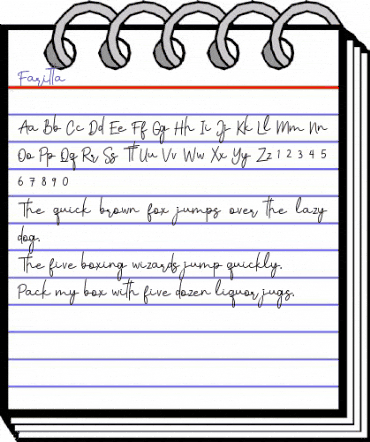 Faritta
Aa Bb Cc Dd Ee Ff Gg Hh Ii Jj Kk Ll Mm Nn
Oo Pp Qq Rr Ss Tt Uu Vv Ww Xx Yy Zz 1 2 3 4 5
6 7 8 9 0
The quick brown fox jumps over the lazy
dog.
The five boxing wizards jump quickly.
Pack my box with five dozen liquor jugs.